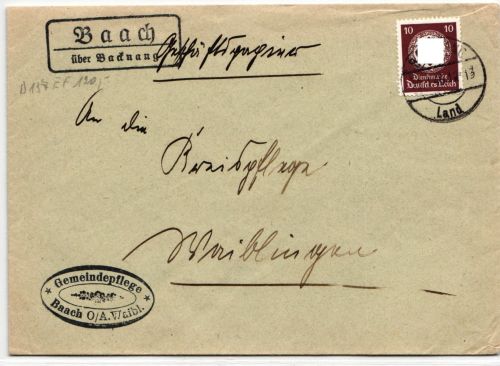 Baach
über Backnang
Geschäftspapier
10 10
Dienstmarke
Deutsches Reich
Land
An die
Kreispflege
Waiblingen
Gemeindepflege
Baach O/A. Waibl.